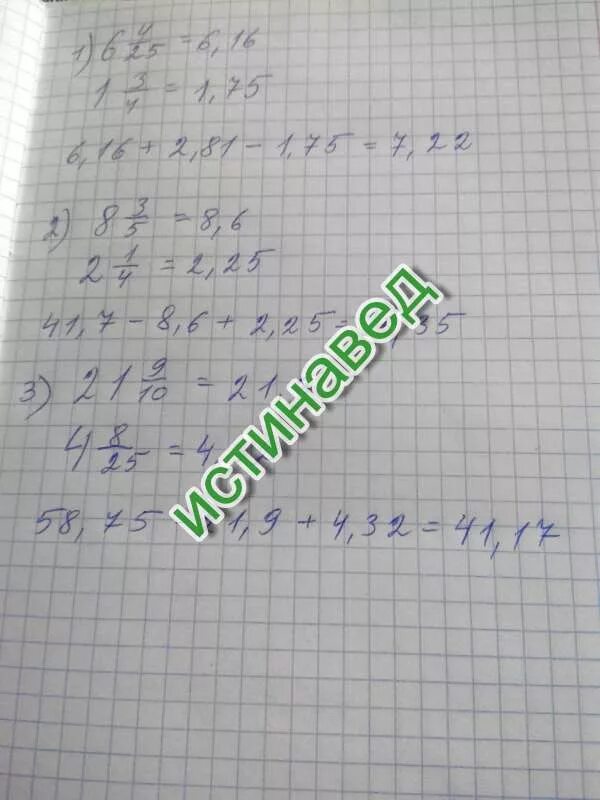 1) 6 4/25 = 6,16
1 3/4 = 1,75
6,16 + 2,81 - 1,75 = 7,22
2) 8 3/5 = 8,6
2 1/4 = 2,25
41,7 - 8,6 + 2,25 = ,35
3) 21 9/10 = 21
4 8/25 = 4,
58,75 1,9 + 4,32 = 41,17
истинавед